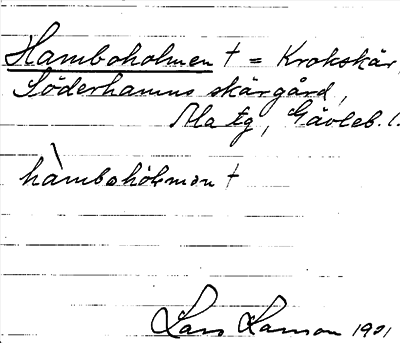 Hamboholmen † = Krokskär,
Söderhamns skärgård,
Ala tg, Gävleb. l.
hàmbohòlmən †
Lars Larsson 1921